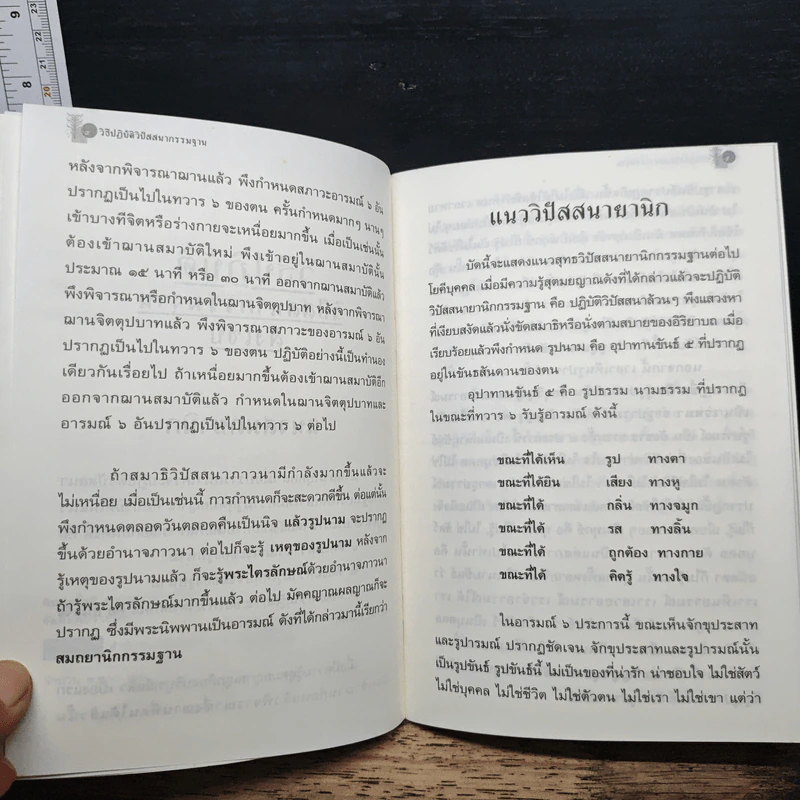 9
8
21
20
วิธีปฏิบัติวิปัสสนากรรมฐาน
หลังจากพิจารณาฌานแล้ว พึงกำหนดสภาวะอารมณ์ ๖ อัน
ปรากฏเป็นไปในทวาร ๖ ของตน ครั้นกำหนดมากๆ นานๆ
เข้าบางทีจิตหรือร่างกายจะเหนื่อยมากขึ้น เมื่อเป็นเช่นนั้น
ต้องเข้าฌานสมาบัติใหม่ พึงเข้าอยู่ในฌานสมาบัตินั้น
ประมาณ ๑๕ นาที หรือ ๓๐ นาที ออกจากฌานสมาบัติแล้ว
พึงพิจารณาหรือกำหนดในฌานจิตตุปบาท หลังจากพิจารณา
ฌานจิตตุปบาทแล้ว พึงพิจารณาสภาวะของอารมณ์ ๖ อัน
ปรากฏเป็นไปในทวาร ๖ ของตน ปฏิบัติอย่างนี้เป็นทำนอง
เดียวกันเรื่อยไป ถ้าเหนื่อยมากขึ้นต้องเข้าฌานสมาบัติอีก
ออกจากฌานสมาบัติแล้ว กำหนดในฌานจิตตุปบาทและ
อารมณ์ ๖ อันปรากฏเป็นไปในทวาร ๖ ต่อไป
ถ้าสมาธิวิปัสสนาภาวนามีกำลังมากขึ้นแล้วจะ
ไม่เหนื่อย เมื่อเป็นเช่นนี้ การกำหนดก็จะสะดวกดีขึ้น ต่อแต่นั้น
พึงกำหนดตลอดวันตลอดคืนเป็นนิจ แล้วรูปนาม จะปรากฏ
ขึ้นด้วยอำนาจภาวนา ต่อไปก็จะรู้ เหตุของรูปนาม หลังจาก
รู้เหตุของรูปนามแล้ว ก็จะรู้พระไตรลักษณ์ด้วยอำนาจภาวนา
ถ้ารู้พระไตรลักษณ์มากขึ้นแล้ว ต่อไป มัคคญาณผลญาณก็จะ
ปรากฏ ซึ่งมีพระนิพพานเป็นอารมณ์ ดังที่ได้กล่าวมานี้เรียกว่า
สมถยานิกกรรมฐาน
แนววิปัสสนายานิก
บัดนี้จะแสดงแนวสุทธวิปัสสนายานิกกรรมฐานต่อไป
โยคีบุคคล เมื่อมีความรู้สุตมยญาณดังที่ได้กล่าวแล้วจะปฏิบัติ
วิปัสสนายานิกกรรมฐาน คือ ปฏิบัติวิปัสสนาล้วนๆ พึงแสวงหา
ที่เงียบสงัดแล้วนั่งขัดสมาธิหรือนั่งตามสบายของอิริยาบถ เมื่อ
เรียบร้อยแล้วพึงกำหนด รูปนาม คือ อุปาทานขันธ์ ๕ ที่ปรากฏ
อยู่ในขันธสันดานของตน
อุปาทานขันธ์ ๕ คือ รูปธรรม นามธรรม ที่ปรากฏ
ในขณะที่ทวาร ๖ รับรู้อารมณ์ ดังนี้
ขณะที่ได้เห็น รูป ทางตา
ขณะที่ได้ยิน เสียง ทางหู
ขณะที่ได้ กลิ่น ทางจมูก
ขณะที่ได้ รส ทางลิ้น
ขณะที่ได้ ถูกต้อง ทางกาย
ขณะที่ได้ คิดรู้ ทางใจ
ในอารมณ์ ๖ ประการนี้ ขณะเห็นจักขุประสาท
และรูปารมณ์ ปรากฏชัดเจน จักขุประสาทและรูปารมณ์นั้น
เป็นรูปขันธ์ รูปขันธ์นี้ ไม่เป็นของที่น่ารัก น่าชอบใจ ไม่ใช่สัตว์
ไม่ใช่บุคคล ไม่ใช่ชีวิต ไม่ใช่ตัวตน ไม่ใช่เรา ไม่ใช่เขา แต่ว่า